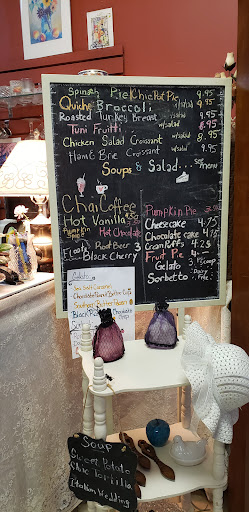 Spinach Pie Chic Pot Pie 9.95
Quiche Broccoli w/salad 9.95
Roasted Turkey Breast w/salad 9.95
Tuni Fruitti w/salad 8.95
Chicken Salad Croissant w/salad 8.95
Ham & Brie Croissant w/salad 9.95
Soups & Salad... see menu
Chai Coffee
Hot Vanilla
Pumpkin
Hot Chocolate
Floats Root Beer 3
Black Cherry
Pumpkin Pie
Cheesecake 4.75
Chocolate cake 4.75
Cream Puffs 4.25
Fruit Pie
Gelato
Sorbetto Dairy Free
Gelato
Sea Salt Caramel
Chocolate Peanut Butter Cup
Southern Butter Pecan
Soup
Sweet Potato
Chic Tortilla
Italian Wedding